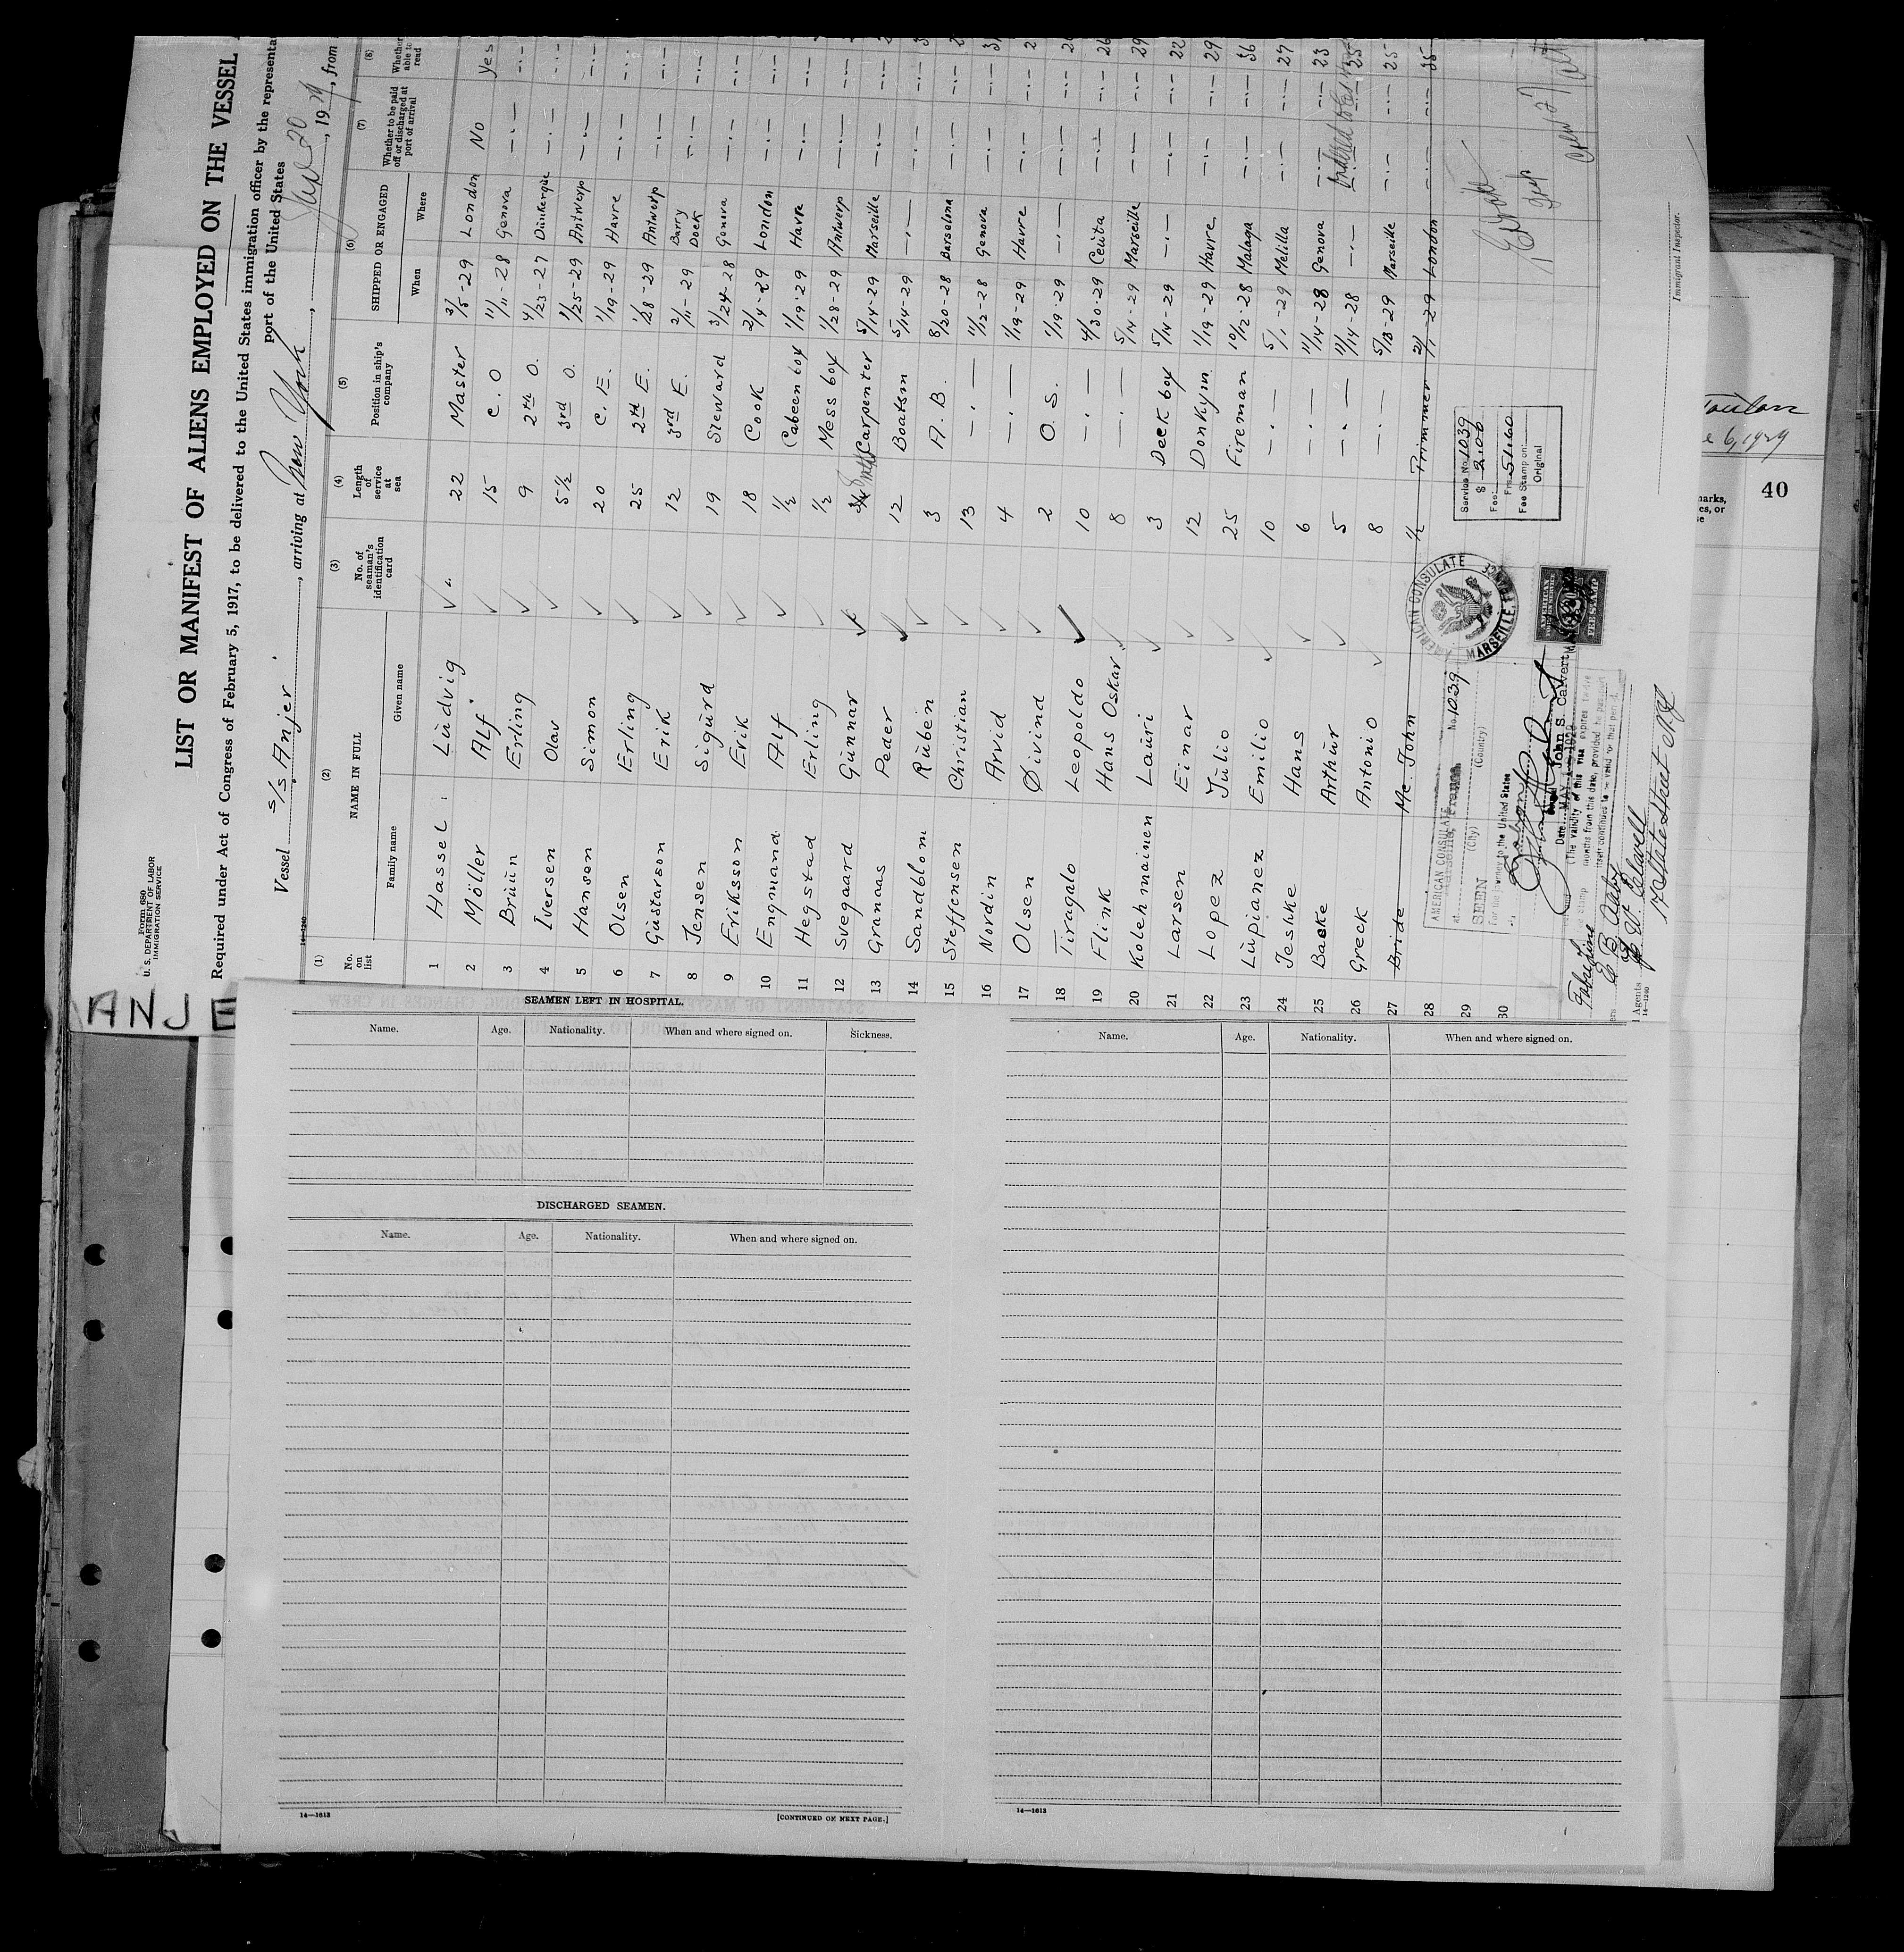 Form 680
U. S. DEPARTMENT OF LABOR
IMMIGRATION SERVICE
LIST OR MANIFEST OF ALIENS EMPLOYED ON THE VESSEL
Required under Act of Congress of February 5, 1917, to be delivered to the United States immigration officer by the representa
port of the United States
Vessel s/s Anjer, arriving at New York, 20, 1929, from
14-1240
(1) (2) (3) (4) (5) (6) (7) (8)
No. on list NAME IN FULL Family name Given name No. of seaman's identification card Length of service at sea Position in ship's company SHIPPED OR ENGAGED When Where Whether to be paid off or discharged at port of arrival Whether able to read
1 Hassel Ludvig 22 Master 3/5-29 London No Yes
2 Möller Alf 15 C. O 11/11-28 Genova —.— —.—
3 Bruun Erling 9 2nd O. 4/23-27 Duinkerque —.— —.—
4 Iversen Olav 5½ 3rd O. 1/25-29 Antwerp —.— —.—
5 Hanson Simon 20 C. E. 1/19-29 Havre —.— —.—
6 Olsen Erling 25 2nd E. 1/28-29 Antwerp —.— —.—
7 Gustarson Erik 12 3rd E. 2/11-29 Barry Dock —.— —.—
8 Jensen Sigurd 19 Steward 3/24-28 Genova —.— —.—
9 Eriksson Erik 18 Cook 2/4-29 London —.— —.—
10 Engmand Alf ½ Cabeen boy 1/19-29 Havre —.— —.—
11 Hegstad Erling ½ Mess boy 1/28-29 Antwerp —.— —.—
12 Svegaard Gunnar Carpenter 5/14-29 Marseille —.— —.—
13 Granaas Peder 12 Boatsm 5/14-29 —.— —.— —.—
14 Sandblom Ruben 3 A. B. 8/20-28 Barselona —.— —.—
15 Steffensen Christian 13 —.— 11/12-28 Genova —.— —.—
16 Nordin Arvid 4 —.— 1/19-29 Havre —.— —.—
17 Olsen Øivind 2 O. S. 1/19-29 —.— —.— —.—
18 Tiragalo Leopoldo 10 —.— 4/30-29 Ceuta —.— —.— 26
19 Flink Hans Oskar 8 —.— 5/14-29 Marseille —.— —.— 29
20 Kolehmainen Lauri 3 Deck boy 5/14-29 —.— —.— —.— 22
21 Larsen Einar 12 Donkyin 1/19-29 Havre —.— —.— 29
22 Lopez Julio 25 Fireman 10/12-28 Malaga —.— —.— 36
23 Lupianez Emilio 10 —.— 5/1-29 Melilla —.— —.— 27
24 Jeshke Hans 6 —.— 11/14-28 Genova —.— —.— 23
25 Backe Arthur 5 —.— 11/14-28 —.— —.— —.— 25
26 Greck Antonio 8 —.— 5/13-29 Marseille —.— —.— 25
27 Bride Mc. John ½ Trimmer 2/1-29 London —.— —.— 35
28
29
30
AMERICAN CONSULATE
at Marseille, France No. 1039
(City) (Country)
SEEN
For the journey to the United States
John S. Calvert
Date MAY 1929
(The validity of this visa expires twelve
months from this date, provided the passport
itself continues to be valid for that period.
AMERICAN CONSULATE
MARSEILLE, FRANCE
AMERICAN
FEE STAMP
Service No. 1039
Fee: $ 2.00
Frs 51.60
Fee Stamp on:
Original
Crew 27
Immigrant Inspector.
Fabre Line
17 State Street NY
Agents
14-1240
ANJE
e 6, 1929
40
SEAMEN LEFT IN HOSPITAL.
Name. Age. Nationality. When and where signed on. Sickness.
DISCHARGED SEAMEN.
Name. Age. Nationality. When and where signed on.
14—1613
[CONTINUED ON NEXT PAGE.]
Name. Age. Nationality. When and where signed on.
14—1613